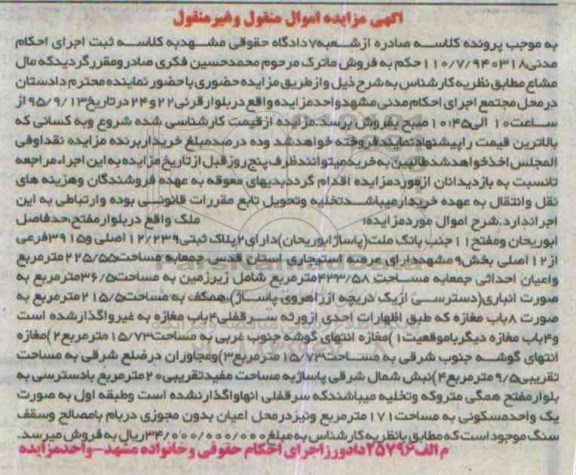 آگهی مزایده اموال منقول وغیرمنقول
به موجب پرونده کلاسه صادره ازشعبه۷دادگاه حقوقی مشهدبه کلاسه ثبت اجرای احکام
مدنی۱۱۰/۷/۹۴۰۳۱۸حکم به فروش ماترک مرحوم محمدحسین فکری صادرومقررگردیدکه مال
مشاع مطابق نظریه کارشناس به شرح ذیل وازطریق مزایده حضوری باحضورنماینده محترم دادستان
درمحل مجتمع اجرای احکام مدنی مشهدواحدمزایده واقع دربلوارقرنی۲۲و۲۴درتاریخ۹۵/۹/۱۳از
ساعت۱۰ الی۱۰:۴۵صبح بفروش برسد.مزایده ازقیمت کارشناسی شده شروع وبه کسانی که
بالاترین قیمت راپیشنهادنمایندفروخته خواهدشد وده درصدمبلغ خریدازبرنده مزایده نقداوفی
المجلس اخذخواهدشدطالبین به خریدمیتوانندظرف پنج روزقبل ازتاریخ مزایده به این اجراءمراجعه
تانسبت به بازدیدازان ازموردمزایده اقدام گرددبدیهای معوقه به عهده فروشندگان وهزینه های
نقل وانتقال به عهده خریدارمیباشدتخلیه وتحویل تابع مقررات قانونی بوده وارتباطی به این
اجراندارد.شرح اموال موردمزایده: ملک واقع دربلوارمفتح،حدفاصل
ابوریحان ومفتح۱۱جنب بانک ملت(پاساژابوریحان)دارای۲پلاک ثبتی۱۲/۲۳۹اصلی و۳۹۱۵فرعی
از۱۲اصلی بخش۹مشهددارای عرصه استیجاری استان قدس جمعابه مساحت۲۲۵/۵۵مترمربع
واعیان احداثی جمعابه مساحت ۴۳۳/۵۸مترمربع شامل زیرزمین به مساحت۳۶/۵مترمربع به
صورت انباری(دسترسی ازیک دریچه ازراهروی پاساژ)،همکف به مساحت۲۱۵/۵مترمربع به
صورت ۸باب مغازه که طبق اظهارات احدی ازورثه سرقفلی۴باب مغازه به غیرواگذارشده است
و۴باب مغازه دیگرباموقعیت۱)مغازه انتهای گوشه جنوب غربی به مساحت۱۵/۷۳مترمربع۲)مغازه
انتهای گوشه جنوب شرقی به مساحت۱۵/۷۳مترمربع۳)ومجاوران درضلع شرقی به مساحت
تقریبی۹/۵مترمربع۴)نبش شمال شرقی پاساژبه مساحت مفیدتقریبی۲۰مترمربع بادسترسی به
بلوارمفتح همگی متروکه وتخلیه میباشندکه سرقفلی انهاواگذارنشده است وطبقه اول به صورت
یک واحدمسکونی به مساحت۱۷۱مترمربع ونیزدرمحل اعیان بدون مجوزی دربام بامصالح وسقف
سنگ موجوداست که مطابق بانظریه کارشناس به مبلغ۳۴/۰۰۰/۰۰۰/۰۰۰ریال به فروش میرسد.
م الف۲۵۷۹۶دادورزاجرای احکام حقوقی وخانواده مشهد-واحدمزایده